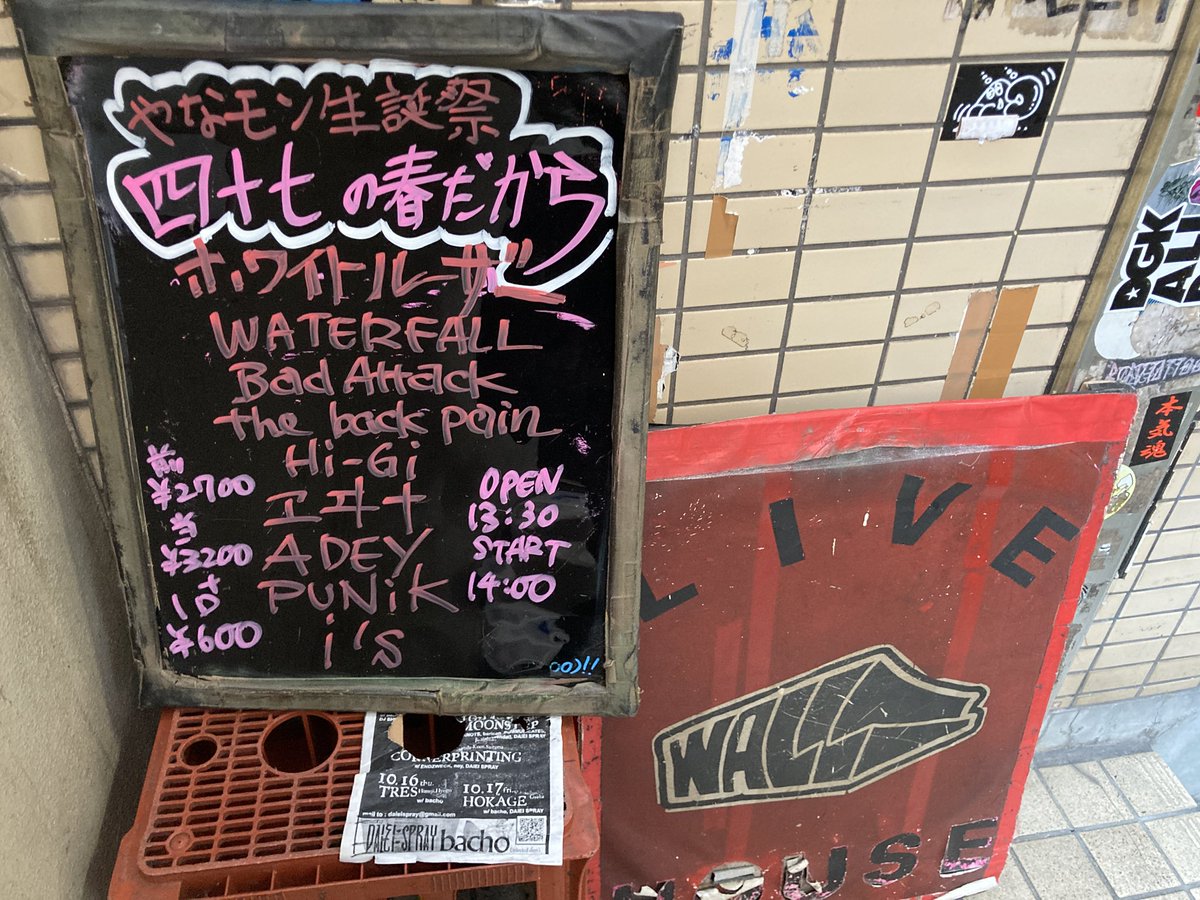 やなモン生誕祭
四十七の春だから
ホワイトルーザー
WATERFALL
Bad Attack
the back pain
Hi-Gi
エヰナ
ADEY
PUNiK
i's
前
¥2700
当
¥3200
+
1D
¥600
OPEN
13:30
START
14:00
LIVE
WALL
HOUSE
MOONSTEP
CORNERPRINTING
10.16 thu.
TRES
w/ bacho
10.17 fri.
HOKAGE
w/ bacho, DAIEI SPRAY
mail to : daieispray@gmail.com
DAIEI-SPRAY
bacho
DGK
本気魂